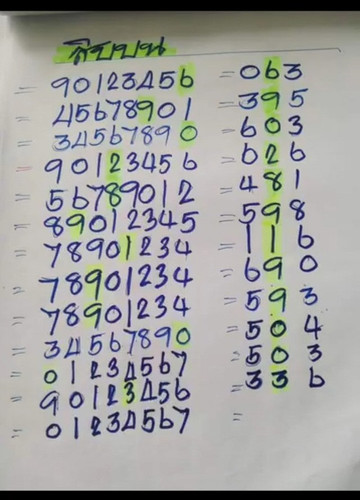 สิบบน
= 90123456 = 063
= 45678901 = 395
= 34567890 = 603
= 90123456 = 626
= 56789012 = 481
= 89012345 = 598
= 78901234 = 116
= 78901234 = 690
= 78901234 = 593
= 34567890 = 504
= 01234567 = 503
= 90123456 = 336
= 01234567 =